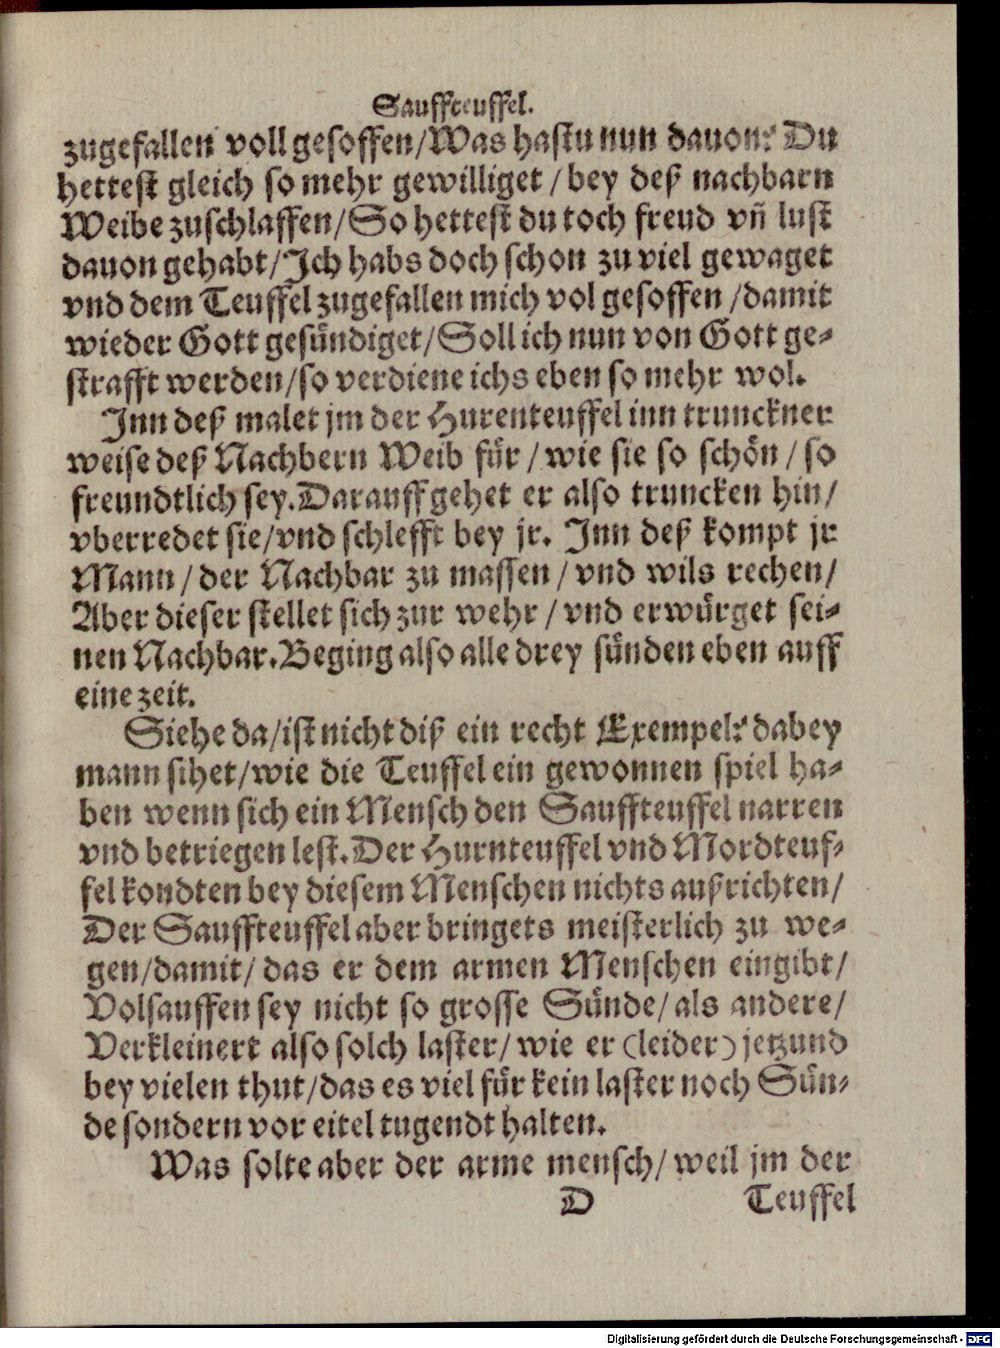 Sauffteuffel.
zugefallen voll gesoffen/Was hastu nun dauon? Du
hettest gleich so mehr gewilliget / bey deß nachbarn
Weibe zuschlaffen/So hettest du toch freud vñ lust
dauon gehabt/Ich habs doch schon zu viel gewaget
vnd dem Teuffel zugefallen mich vol gesoffen /damit
wieder Gott gesündiget/Soll ich nun von Gott ge-
strafft werden/so verdiene ichs eben so mehr wol.
Inn deß malet jm der Hurenteuffel inn trunckner
weise deß Nachbern Weib für / wie sie so schön / so
freundtlich sey. Darauff gehet er also truncken hin/
vberredet sie/vnd schlefft bey jr. Inn deß kompt jr
Mann / der Nachbar zu massen / vnd wils rechen/
Aber dieser stellet sich zur wehr / vnd erwürget sei-
nen Nachbar. Beging also alle drey sünden eben auff
eine zeit.
Siehe da/ist nicht diß ein recht Exempel? dabey
mann sihet/wie die Teuffel ein gewonnen spiel ha-
ben wenn sich ein Mensch den Sauffteuffel narren
vnd betriegen lest. Der Hurnteuffel vnd Mordteuf-
fel kondten bey diesem Menschen nichts außrichten/
Der Sauffteuffel aber bringets meisterlich zu we-
gen/damit/ das er dem armen Menschen eingibt/
Volsauffen sey nicht so grosse Sünde/ als andere/
Verkleinert also solch laster/ wie er (leider) jetzund
bey vielen thut/das es viel für kein laster noch Sün-
de sondern vor eitel tugendt halten.
Was solte aber der arme mensch/ weil jm der
D Teuffel
Digitalisierung gefördert durch die Deutsche Forschungsgemeinschaft - DFG